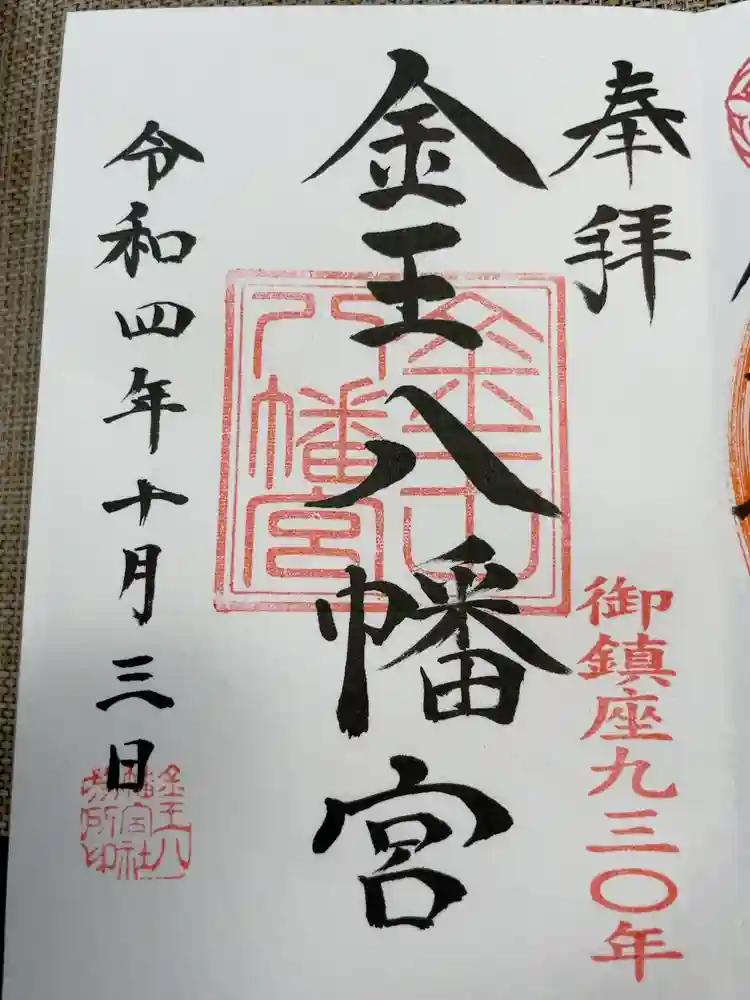 奉拝
御鎮座九三〇年
金王八幡宮
金王八幡宮
令和四年十月三日
金王八幡宮社務所印